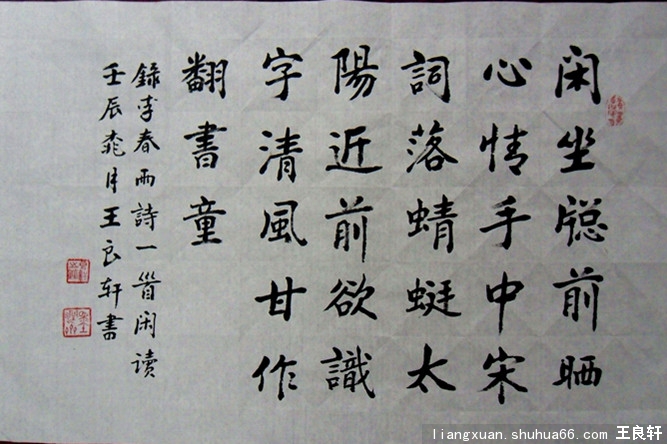 闲坐牕前晒
心情手中宋
詞落蜻蜓太
陽近前欲識
字清風甘作
翻書童
錄李春雨詩一首闲讀
壬辰桃月王良轩書
liangxuan.shuhua66.com 王良轩